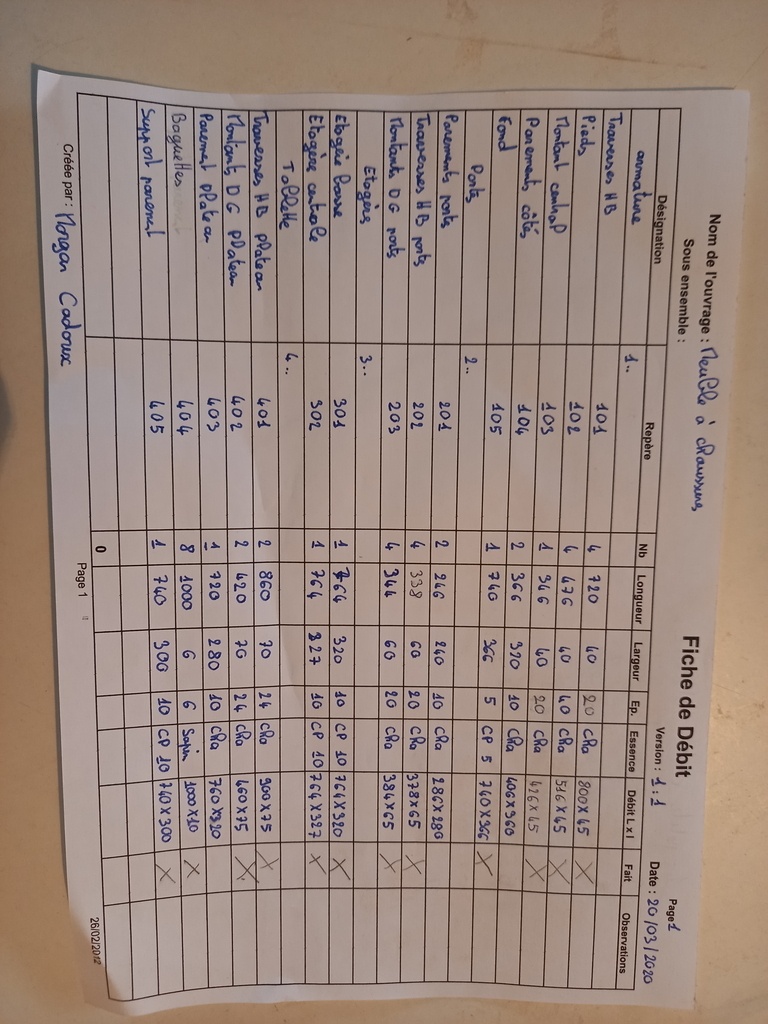 Page 1
Nom de l'ouvrage : Meuble à chaussures Fiche de Débit
Sous ensemble : Version : 1 : 1 Date : 20/03/2020
Désignation Repère Nb Longueur Largeur Ep. Essence Débit L x l Fait Observations
armature 1..
Traverses HB 101 4 720 40 20 Cha 800 x 45 X
Pieds 102 4 476 40 40 Cha 516 x 45 X
Montant central 103 1 346 40 20 Cha 426 x 45 X
Parements côtés 104 2 366 370 10 Cha 406 x 960
Fond 105 1 740 366 5 CP 5 740 x 366 X
Porte 2..
Parements porte 201 2 246 240 10 Cha 286 x 280
Traverses HB porte 202 4 338 60 20 Cha 378 x 65 X
Montants DG porte 203 4 344 60 20 Cha 384 x 65 X
Etagère 3..
Etagère basse 301 1 764 320 10 CP 10 764 x 320 X
Etagère centrale 302 1 764 327 10 CP 10 764 x 327 X
Tablette 4..
Traverses HB plateau 401 2 860 70 24 Cha 900 x 75 X
Montants DG plateau 402 2 420 70 24 Cha 460 x 75 X
Parement plateau 403 1 720 280 10 Cha 760 x 320
Baguettes 404 8 1000 6 6 Sapin 1000 x 10 X
Support parement 405 1 740 300 10 CP 10 740 x 300 X
0
Créée par : Morgan Cadoux Page 1 26/02/2012